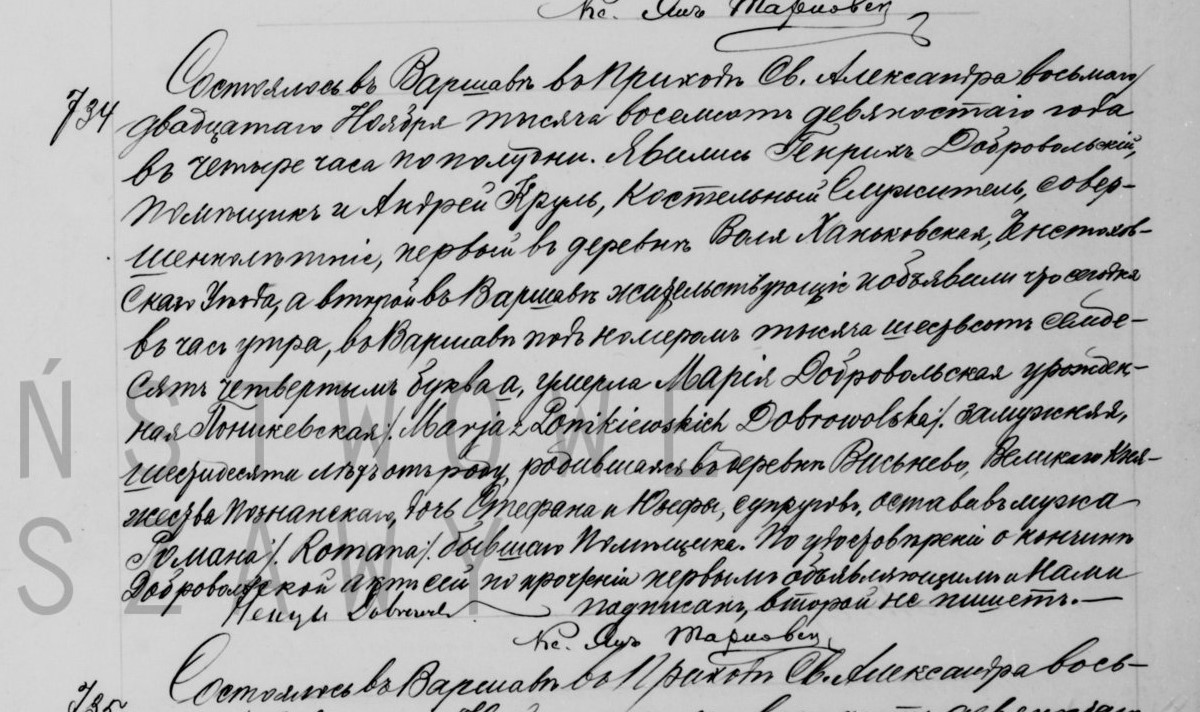 Кс. Янъ Тарновски
734
Состоялось въ Варшавѣ въ Приходѣ Св. Александра восьмаго/
двадцатаго Ноября тысяча восемсотъ девяностаго года
въ четыре часа по полудни. Явились Генрихъ Добровольскій,
Помѣщикъ и Андрей Круль, Костельный Служитель, совер-
шеннолѣтніе, первый въ деревнѣ Воля Ханьковская, Ченстохов-
скаго Уѣзда, а второй въ Варшавѣ жительствующіе и объявили что сегодня
въ часъ утра, въ Варшавѣ подъ номеромъ тысяча шестьсотъ семде-
сятъ четвертымъ буква а, умерла Марія Добровольская урожден-
ная Поникевская /. Marja z Ponikiewskich Dobrowolska /. замужняя,
шестидесяти лѣтъ отъ роду, родившаяся въ деревнѣ Висьнево, Великаго Кня-
жества Познанскаго, дочь Стефана и Юзефы, супруговъ, оставивъ мужа
Романа /. Romana /. бывшаго Помѣщика. По удостовѣреніи о кончинѣ
Добровольской актъ сей по прочтеніи первымъ объявляющимъ и Нами
подписанъ, второй не пишетъ. —
Henryk
Кс. Янъ Тарновски
735
Состоялось въ Варшавѣ въ Приходѣ Св. Александра вось-
ŃSTWOWE
SZAWY